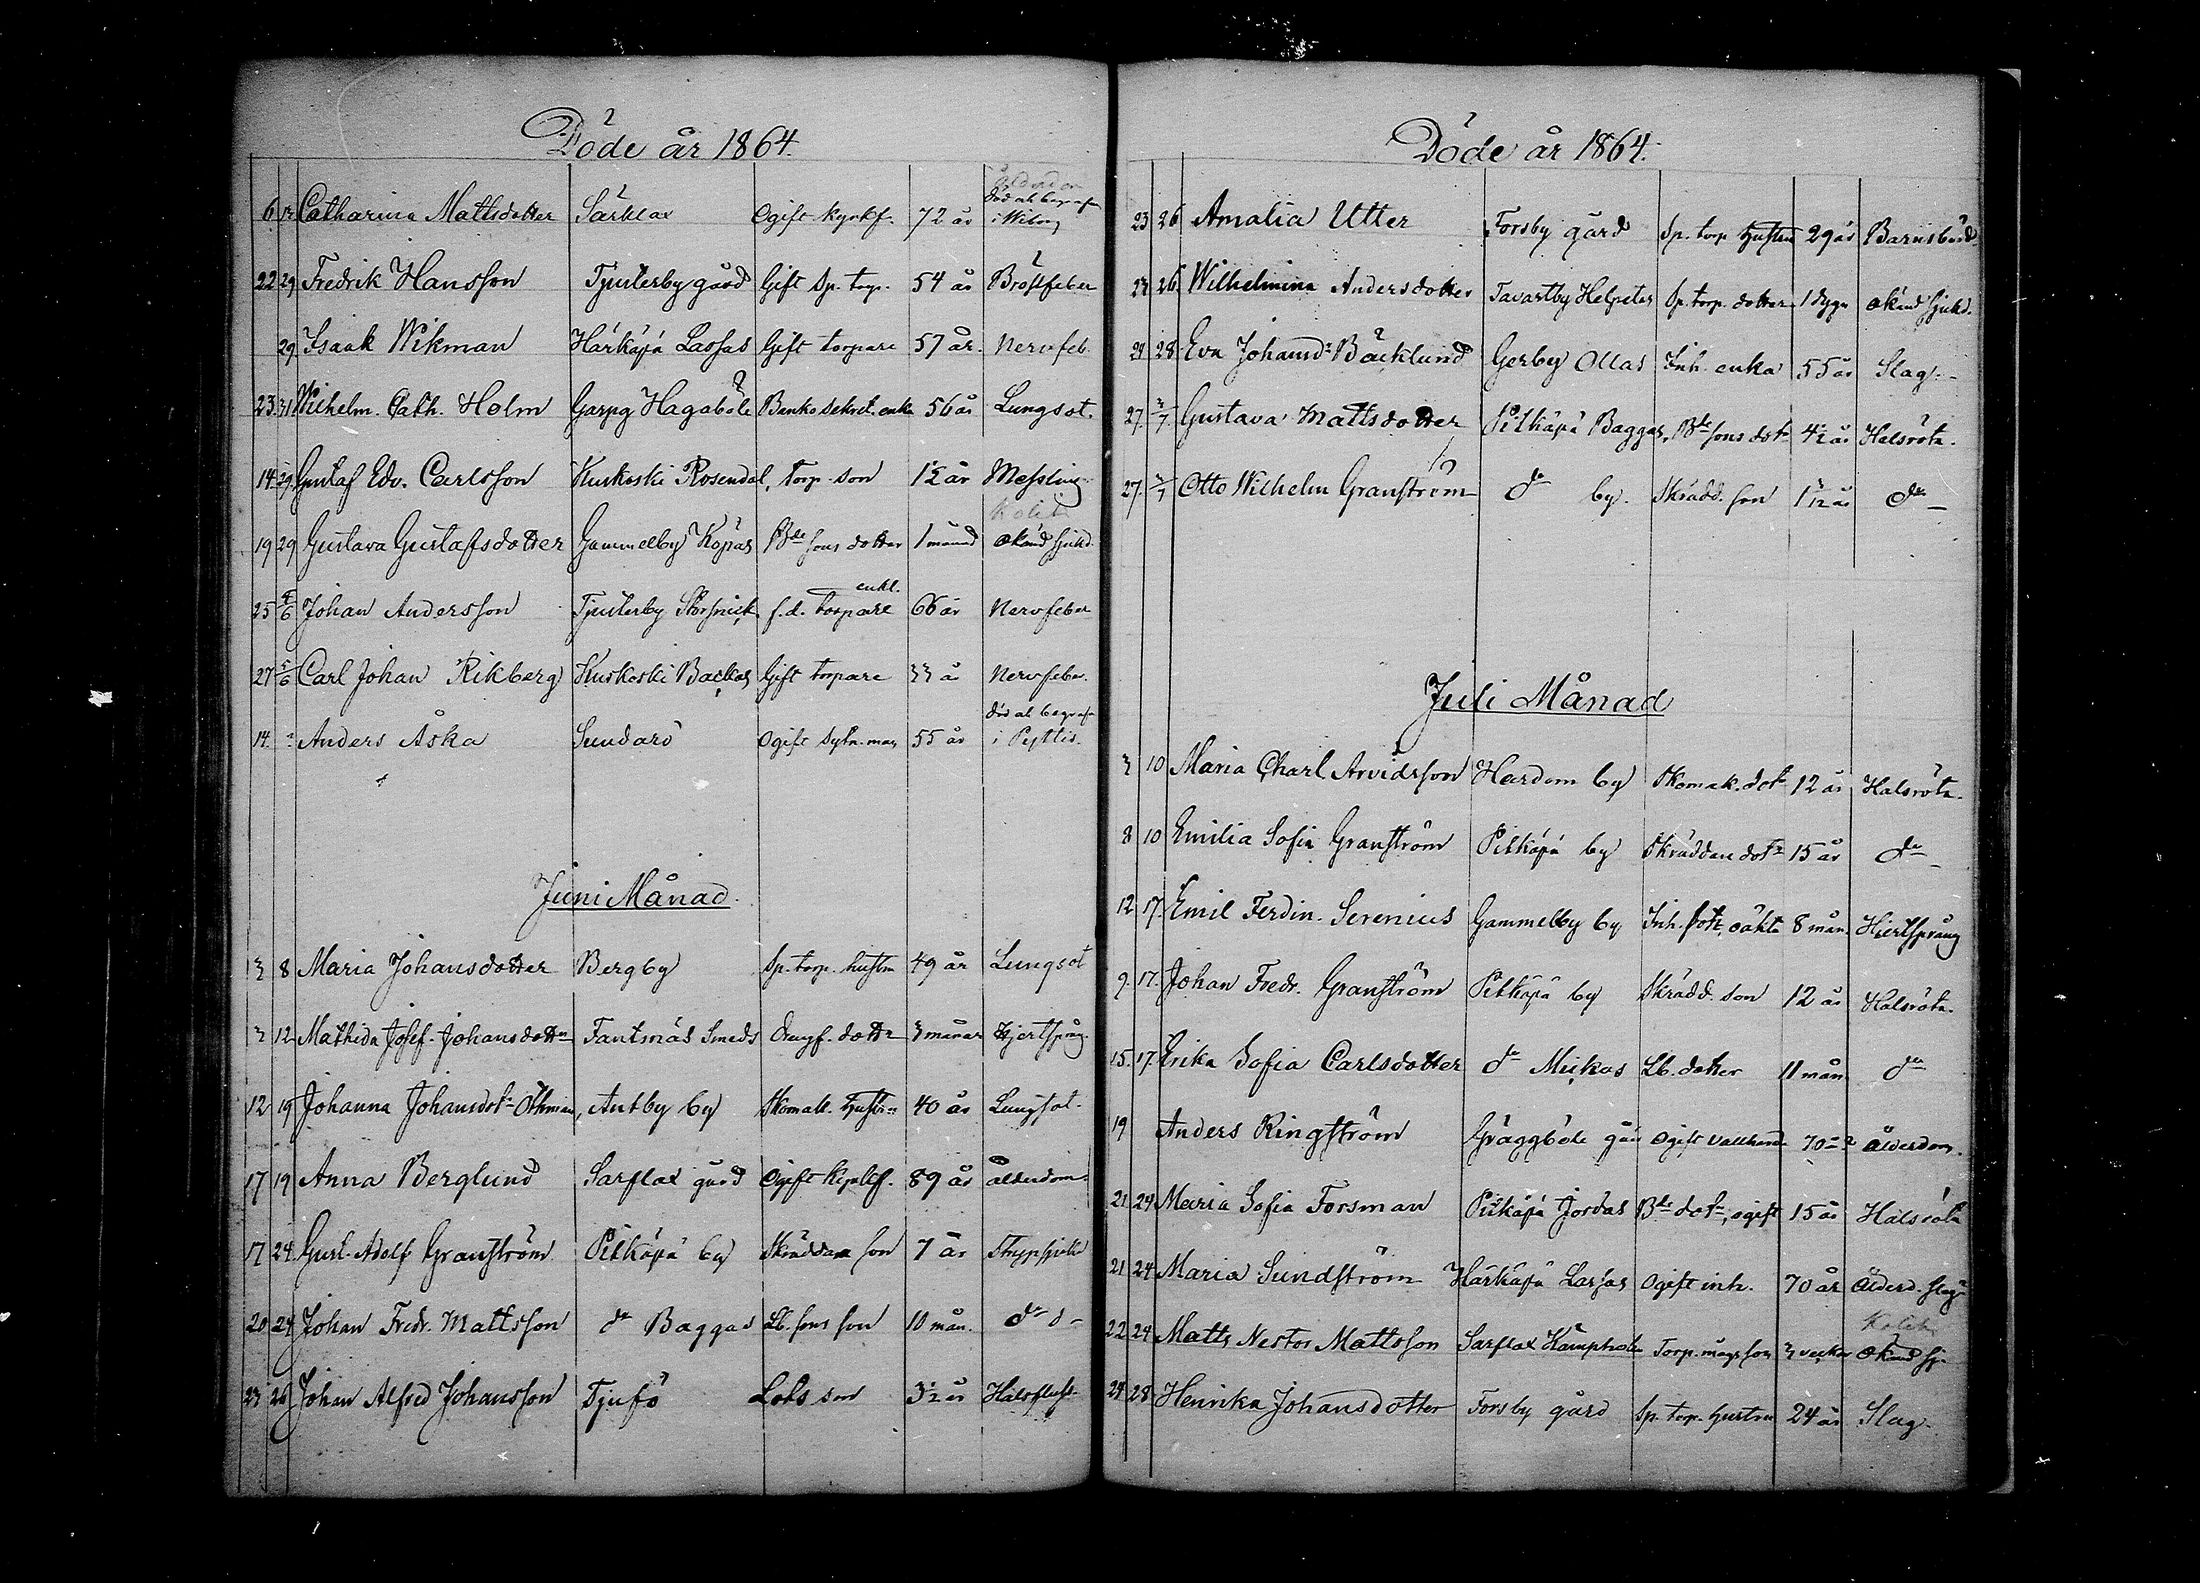 Döde år 1864.
6 12 Catharina Mattsdotter Särklax Ogift kyrkf. 72 år död at begrafn i
22 29 Fredrik Hansson Tjusterby gård Gift Sp. torp. 54 år Bröstfeber
29 Isaak Wikman Härkäpä Lassas Gift torpare 57 år. Nervfeb.
23 31 Wilhelm. Cath. Holm Garpg Hagaböle Banko sekret. enka 56 år Lungsot.
14 29 Gustaf Edv. Carlsson Kuskoski Rosendal, torp. son 1½ år Messling
19 29 Gustava Gustafsdotter Gammelby Köpas Bde sons dotter 1 månad okänd sjukd.
enkl.
25 4/6 Johan Andersson Tjusterby f.d. torpare 66 år Nervfeber
27 5/6 Carl Johan Rikberg Kuskoski Backas Gift torpare 33 år Nervfeber.
14. Anders Åska Sundarö Ogift sytn. man 55 år död at begrafn i Pyttis.
Juni Månad.
3 8 Maria Johansdotter Bergby Sp. torp. hustru 49 år Lungsot
3 12 Mathilda Josef. Johansdotter Fantsnäs Smeds dotter 3 månar Hjertsprång.
12 19 Johanna Johansdotr Öhman, Antby by Skomak. hustru 40 år Lungsot.
17 19 Anna Berglund Sarflax gård Ogift 89 år ålderdom.
17 24 Gust. Adolf Granström Pitkäpä by Skräddare son 7 år Strypsjuka
20 24 Johan Fredr. Mattsson do Baggas Lb. sons son 10 mån. do
23 26 Johan Alfred Johansson Tjufö Lots son 3½ år Halsfluss
Döde år 1864.
23 26 Amalia Utter Forsby gård Sp. torp hustru 29 år Barnsbörd.
24 26. Wilhelmina Andersdotter Tavastby Helpster Sp. torp. dotter 1 dygn okänd sjukd.
24 28 Eva Johansdr Bäcklund Gerby Ollas Inh. enka 55 år Slag.
27. 3/7 Gustava Mattsdotter Pitkäpä Baggas, Bde sons dotr 4½ år Halsröta.
27. 3/7 Otto Wilhelm Granström do by. Skrädd. son år do
Juli Månad
3 10 Maria Charl. Arvidsson Hardom by Skomak. dotr 12 år Halsröta.
8 10 Emilia Sofia Granström Pitkäpä by Skräddare dotr 15 år do
12 17. Emil Ferdin. Serenius Gammelby by Inh. oäkta 8 mån. Hjertsprång
9. 17. Johan Fredr. Granström Pitkäpä by Skrädd. son 12 år Halsröta.
15. 17. Erika Sofia Carlsdotter do Mickas Lb. dotter 11 mån do
19 Anders Ringström Gräggböle gård Ogift 70 år ålderdom.
21 24 Maria Sofia Forsman Pitkäpä Jordas Bde dotr, ogift 15 år Halsröta
21 24 Maria Sundström Härkäpä Lassas Ogift inh. 70 år Ålderd. slag
22 24 Matts Nestor Mattsson Sarflax Torp. mågs son 3 veckor Okänd sj.
24 28 Henrika Johansdotter Forsby gård Sp. torp. hustru 24 år Slag.